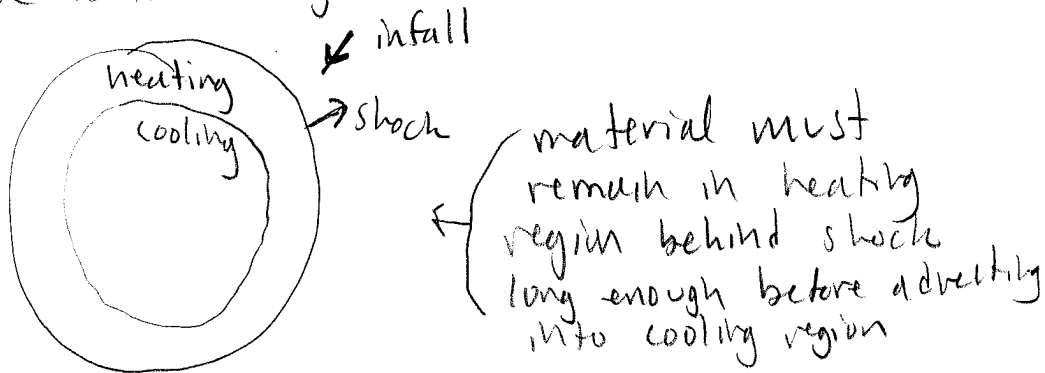 infall
heating
shock
cooling
material must
remain in heating
region behind shock
long enough before advecting
into cooling region